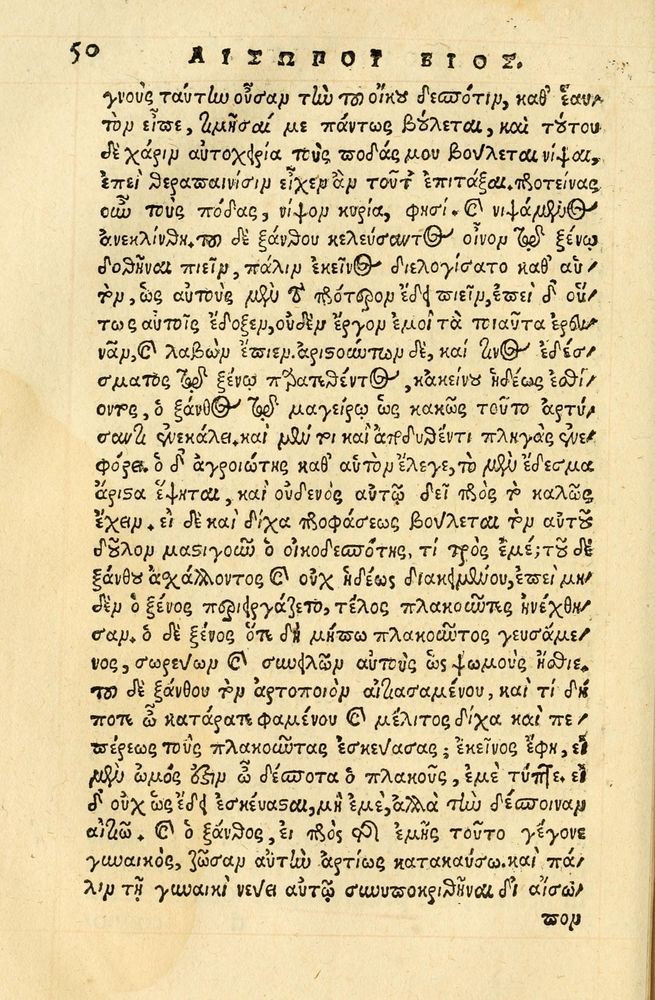 50 ΑΙΣΩΠΟΥ ΒΙΟΣ.
γνοὺς ταύτην οὖσαν τὴν τοῦ οἴκου δεσπότιν, καθ᾽ ἑαυ-
τὸν εἶπε, τιμῆσαί με πάντως βούλεται, καὶ τούτου
δὲ χάριν αὐτοχειρία τοὺς πόδας μου βούλεται νίψαι,
ἐπεὶ θεραπαινίσιν εἶχεν ἂν τοῦτ᾽ ἐπιτάξαι. προτείνας
οὖν τοὺς πόδας, νίψον κυρία, φησί. καὶ νιψάμενος
ἀνεκλίνθη. τοῦ δὲ ξάνθου κελεύσαντος οἶνον τῷ ξένῳ
δοθῆναι πιεῖν, πάλιν ἐκεῖνος διελογίσατο καθ᾽ αὑ-
τὸν, ὡς αὐτοὺς μὲν δεῖ πρότερον ἔδει πιεῖν, ἐπεὶ δ᾽ οὕ-
τως αὐτοῖς ἔδοξεν, οὐδὲν ἔργον ἐμοὶ τὰ τοιαῦτα ἐρευ-
νᾶν, καὶ λαβὼν ἔπιεν. ἀριστώντων δὲ, καί τινος ἐδέσ-
σματος τῷ ξένῳ παρατεθέντος, κἀκείνου ἡδέως ἐσθί-
οντος, ὁ ξάνθος τῷ μαγείρῳ ὡς κακῶς τοῦτο ἀρτύ-
σαντι ἐνεκάλει. καὶ μέν τοι καὶ ἀπεκδυθέντι πληγὰς ἐνε-
φόρει. ὁ δ᾽ ἀγροιώτης καθ᾽ αὑτὸν ἔλεγε, τὸ μὲν ἔδεσμα
ἄριστα ἕψηται, καὶ οὐδενὸς αὐτῷ δεῖ πρὸς τὸ καλῶς
ἔχειν. εἰ δὲ καὶ δίχα προφάσεως βούλεται τὸν αὑτοῦ
δοῦλον μαστιγοῦν ὁ οἰκοδεσπότης, τί πρὸς ἐμέ; τοῦ δὲ
ξάνθου ἀχάλλοντος καὶ οὐχ ἡδέως διακειμένου, ἐπεὶ μη-
δὲν ὁ ξένος περιειργάζετο, τέλος πλακοῦντες ἠνέχθη-
σαν. ὁ δὲ ξένος ὅτι δὴ μήπω πλακοῦντος γευσάμε-
νος, σωρεύων καὶ συνειλῶν αὐτοὺς ὡς ψωμοὺς ἤσθιε.
τοῦ δὲ ξάνθου τὸν ἀρτοποιὸν αἰτιασαμένου, καὶ τί δή
ποτε ὦ κατάρατε φαμένου καὶ μέλιτος δίχα καὶ πε-
πέρεως τοὺς πλακοῦντας ἐσκεύασας; ἐκεῖνος ἔφη, εἰ
μὲν ὠμός ἐστιν ὦ δέσποτα ὁ πλακοῦς, ἐμὲ τύπτε. εἰ
δ᾽ οὐχ ὡς ἔδει ἐσκεύασται, μὴ ἐμὲ, ἀλλὰ τὴν δέσποιναν
αἰτιῶ. καὶ ὁ ξάνθος, εἰ πρὸς τῆς ἐμῆς τοῦτο γέγονε
γυναικὸς, ζῶσαν αὐτὴν ἀρτίως κατακαύσω. καὶ πά-
λιν τῇ γυναικὶ νεύει αὐτῷ συνυποκριθῆναι δι᾽ αἴσω-
πον